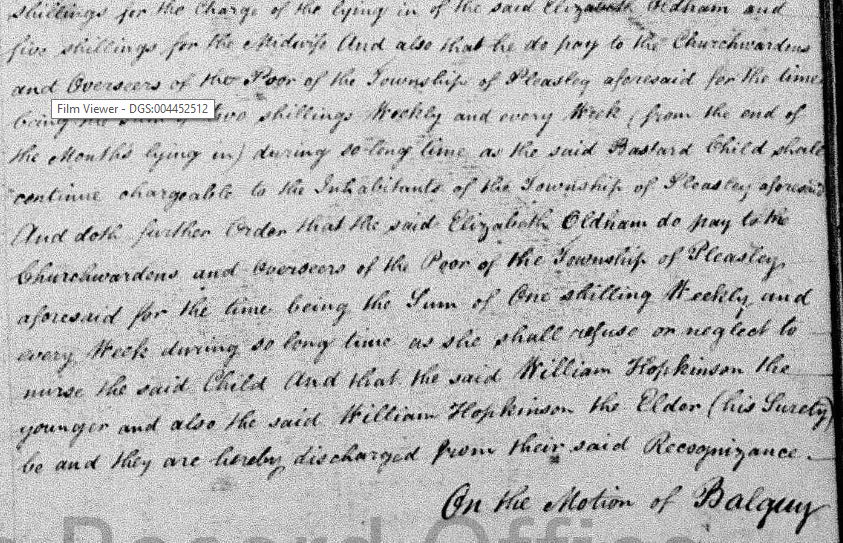 shillings for the Charge of the lying in of the said Elizabeth Oldham and
five shillings for the Midwife And also that he do pay to the Churchwardens
and Overseers of the Poor of the Township of Pleasley aforesaid for the time
Film Viewer - DGS:004452512
being the Sum of two shillings Weekly and every Week (from the end of
the Month's lying in) during so long time as the said Bastard Child shall
continue chargeable to the Inhabitants of the Township of Pleasley aforesaid
And doth further Order that the said Elizabeth Oldham do pay to the
Churchwardens and Overseers of the Poor of the Township of Pleasley
aforesaid for the time being the Sum of One shilling Weekly and
every Week during so long time as she shall refuse or neglect to
nurse the said Child And that the said William Hopkinson the
younger and also the said William Hopkinson the Elder (his Surety)
be and they are hereby discharged from their said Recognizance.
On the Motion of Balguy
Record Office